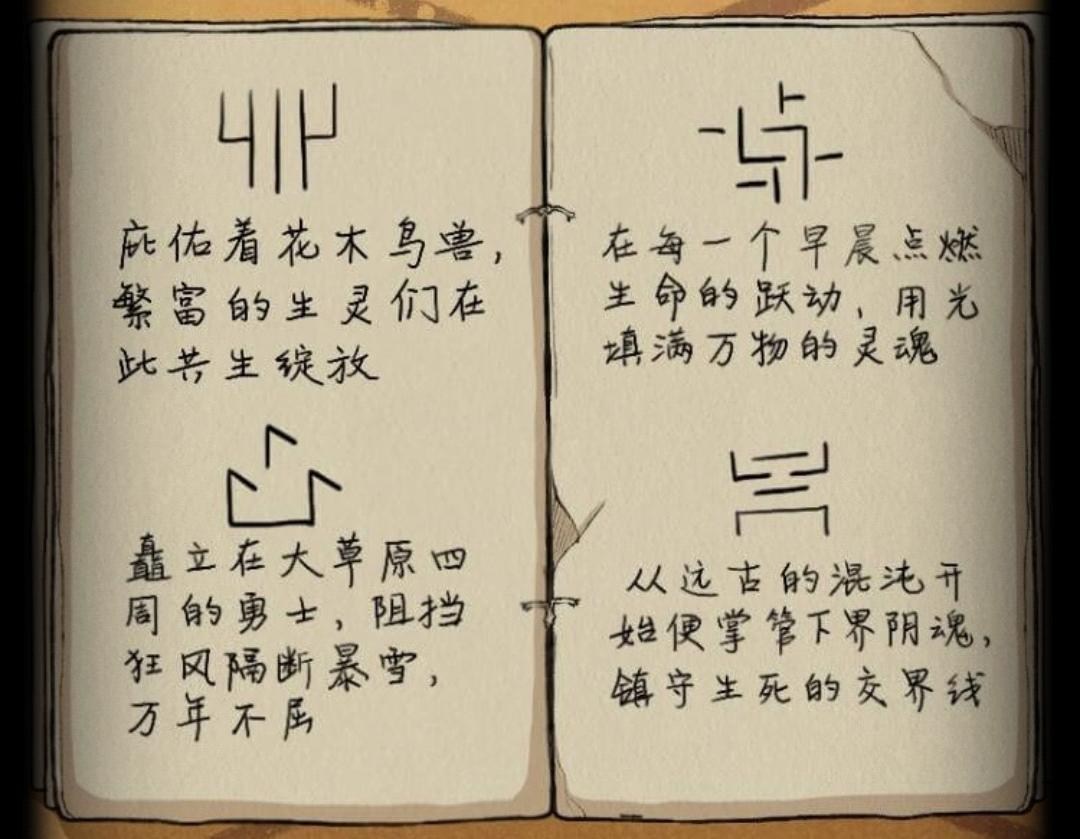 庇佑着花木鸟兽，
繁富的生灵们在
此共生绽放
矗立在大草原四
周的勇士，阻挡
狂风隔断暴雪，
万年不屈
在每一个早晨点燃
生命的跃动，用光
填满万物的灵魂
从远古的混沌开
始便掌管下界阴魂，
镇守生死的交界线